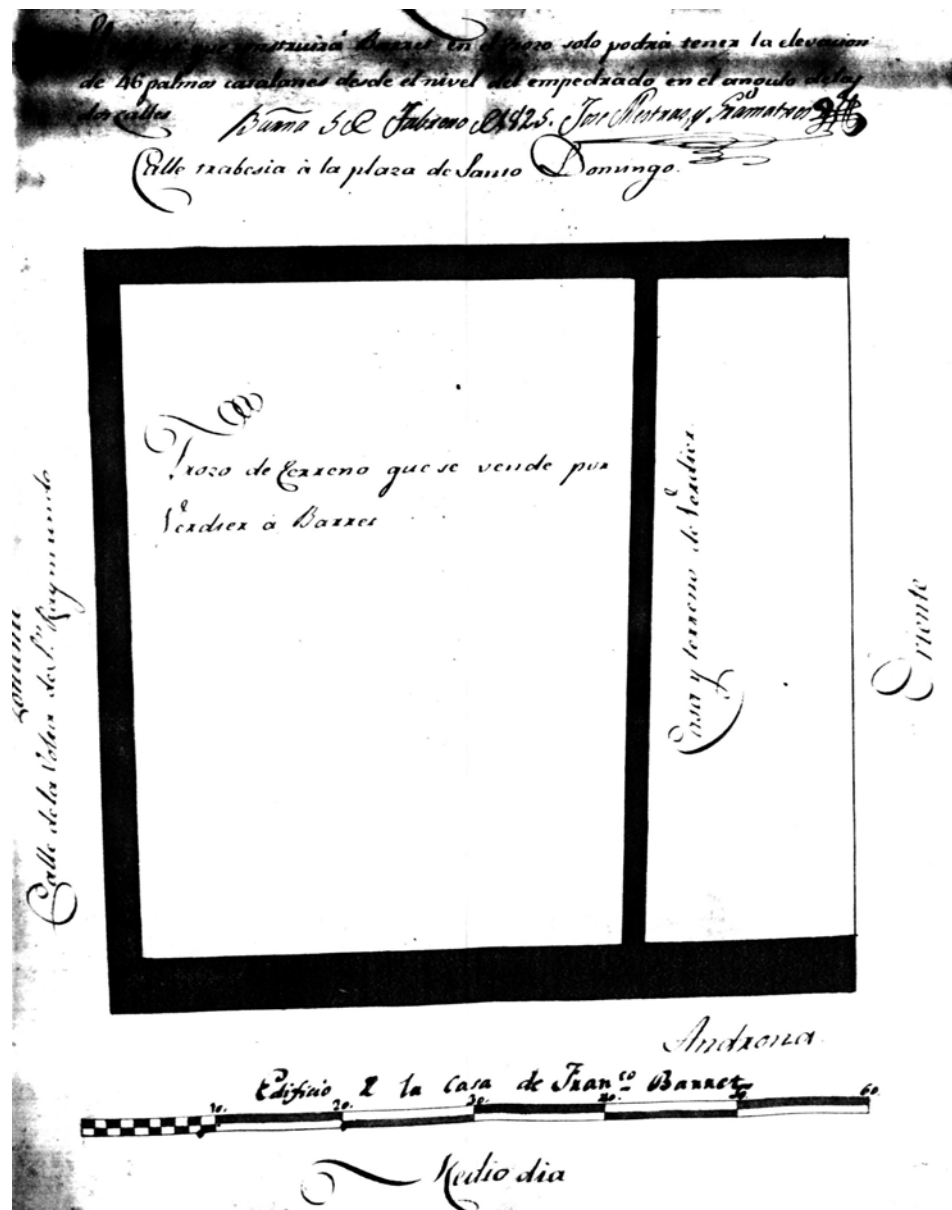 que construirá Barret en el trozo solo podrá tener la elevacion
de 46 palmos catalanes desde el nivel del empedrado en el angulo de las
dos calles
Barña 5 Febrero 1825. Jose Mestres y Gramatxes
Calle trabesia à la plaza de Santo Domingo.
Trozo de terreno que se vende por
Verdier à Barret
Casa y terreno de Verdier
Calle de la Volta de Sn. Raymundo
Oriente
Androna
Edificio 2 la Casa de Franco Barret
10. 20. 30. 40. 50. 60.
Medio dia